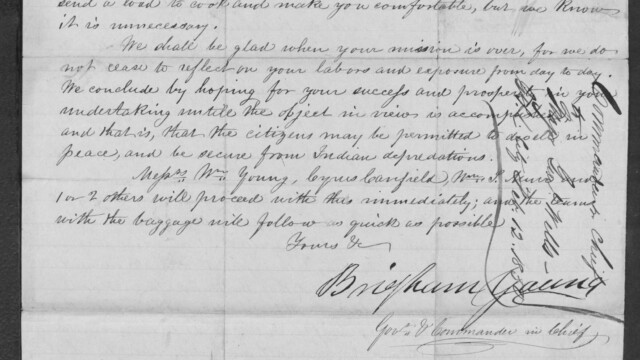 send a load to cook and make you comfortable, but we know
it is unnecessary.
We shall be glad when your mission is over, for we do
not cease to reflect on your labors and exposure from day to day.
We conclude by hoping for your success and prosperity in your
undertaking untill the object in view is accomplished
and that is, that the citizens may be permitted to dwell in
peace, and be secure from Indian depredations.
Messrs Wm Young, Cyrus Canfield, Wm
1 or 2 others will proceed with this immediately; and the team
with the baggage will follow as quick as possible
Yours &c
Brigham Young
Gov. & Commander in Chief
Commander in Chief
to
Wells